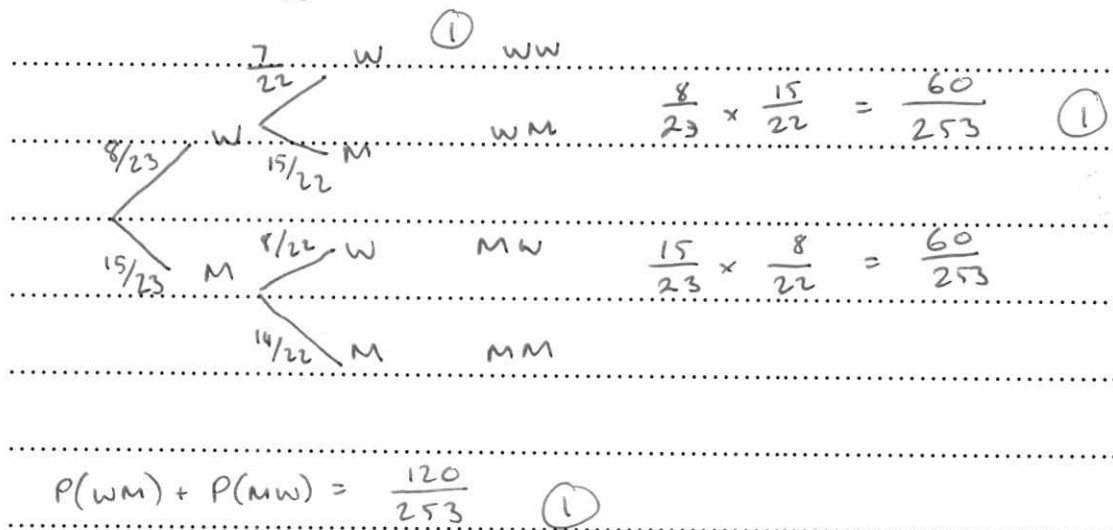 7/22 W ① WW
8/23 × 15/22 = 60/253 ①
8/23 W 15/22 M WM
15/23 M 8/22 W MW 15/23 × 8/22 = 60/253
14/22 M MM
P(WM) + P(MW) = 120/253 ①